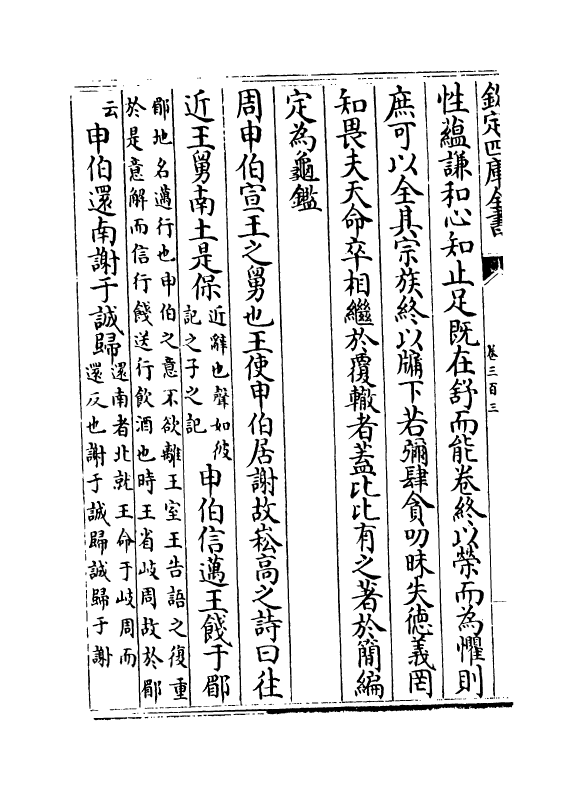 欽定四庫全書
卷三百三
性蘊謙和心知止足既在舒而能卷終以榮而為懼則
庶可以全其宗族終以牖下若彌肆貪叨昧失德義罔
知畏夫天命卒相繼於覆轍者蓋比比有之著於簡編
定為龜鑑
周申伯宣王之舅也王使申伯居謝故崧高之詩曰往
近王舅南土是保
近辭也聲如彼
記之子之記
申伯信邁王餞于郿
郿地名邁行也申伯之意不欲離王室王告語之復重
於是意解而信行餞送行飲酒也時王省岐周故於郿
云
申伯還南謝于誠歸
還南者北就王命于岐周而
還反也謝于誠歸誠歸于謝